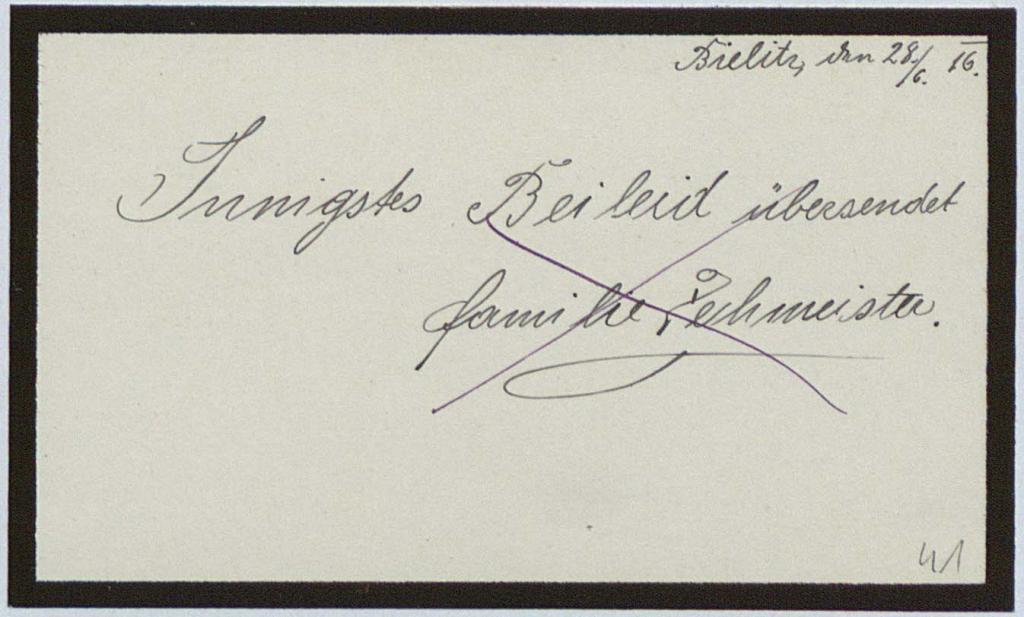 Bielitz, den 28/6. 16.
Innigstes Beileid übersendet
familie Pechmeister.
41